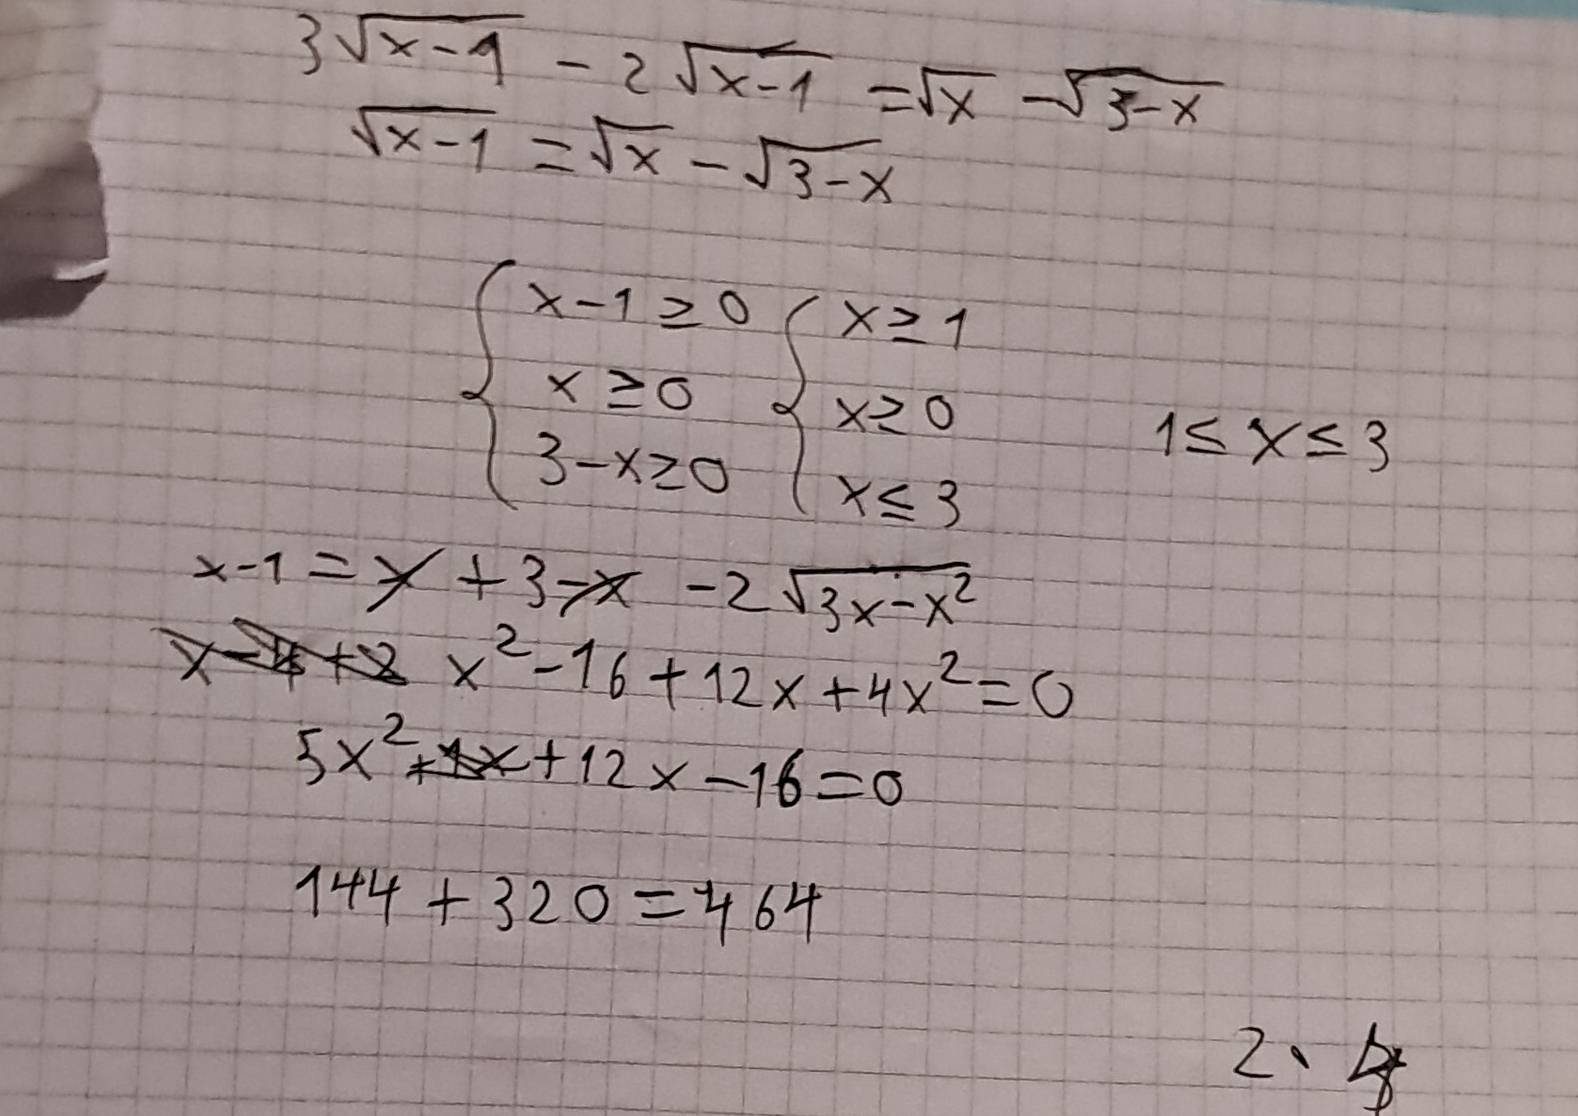 3√(x-1) - 2√(x-1) = √x - √(3-x)
√(x-1) = √x - √(3-x)
{ x-1 ≥ 0 { x ≥ 1
x ≥ 0 x ≥ 0 1 ≤ x ≤ 3
3-x ≥ 0 x ≤ 3
x-1 = x + 3 - x - 2√(3x-x²)
x² - 16 + 12x + 4x² = 0
5x² + 12x - 16 = 0
144 + 320 = 464
2 ·